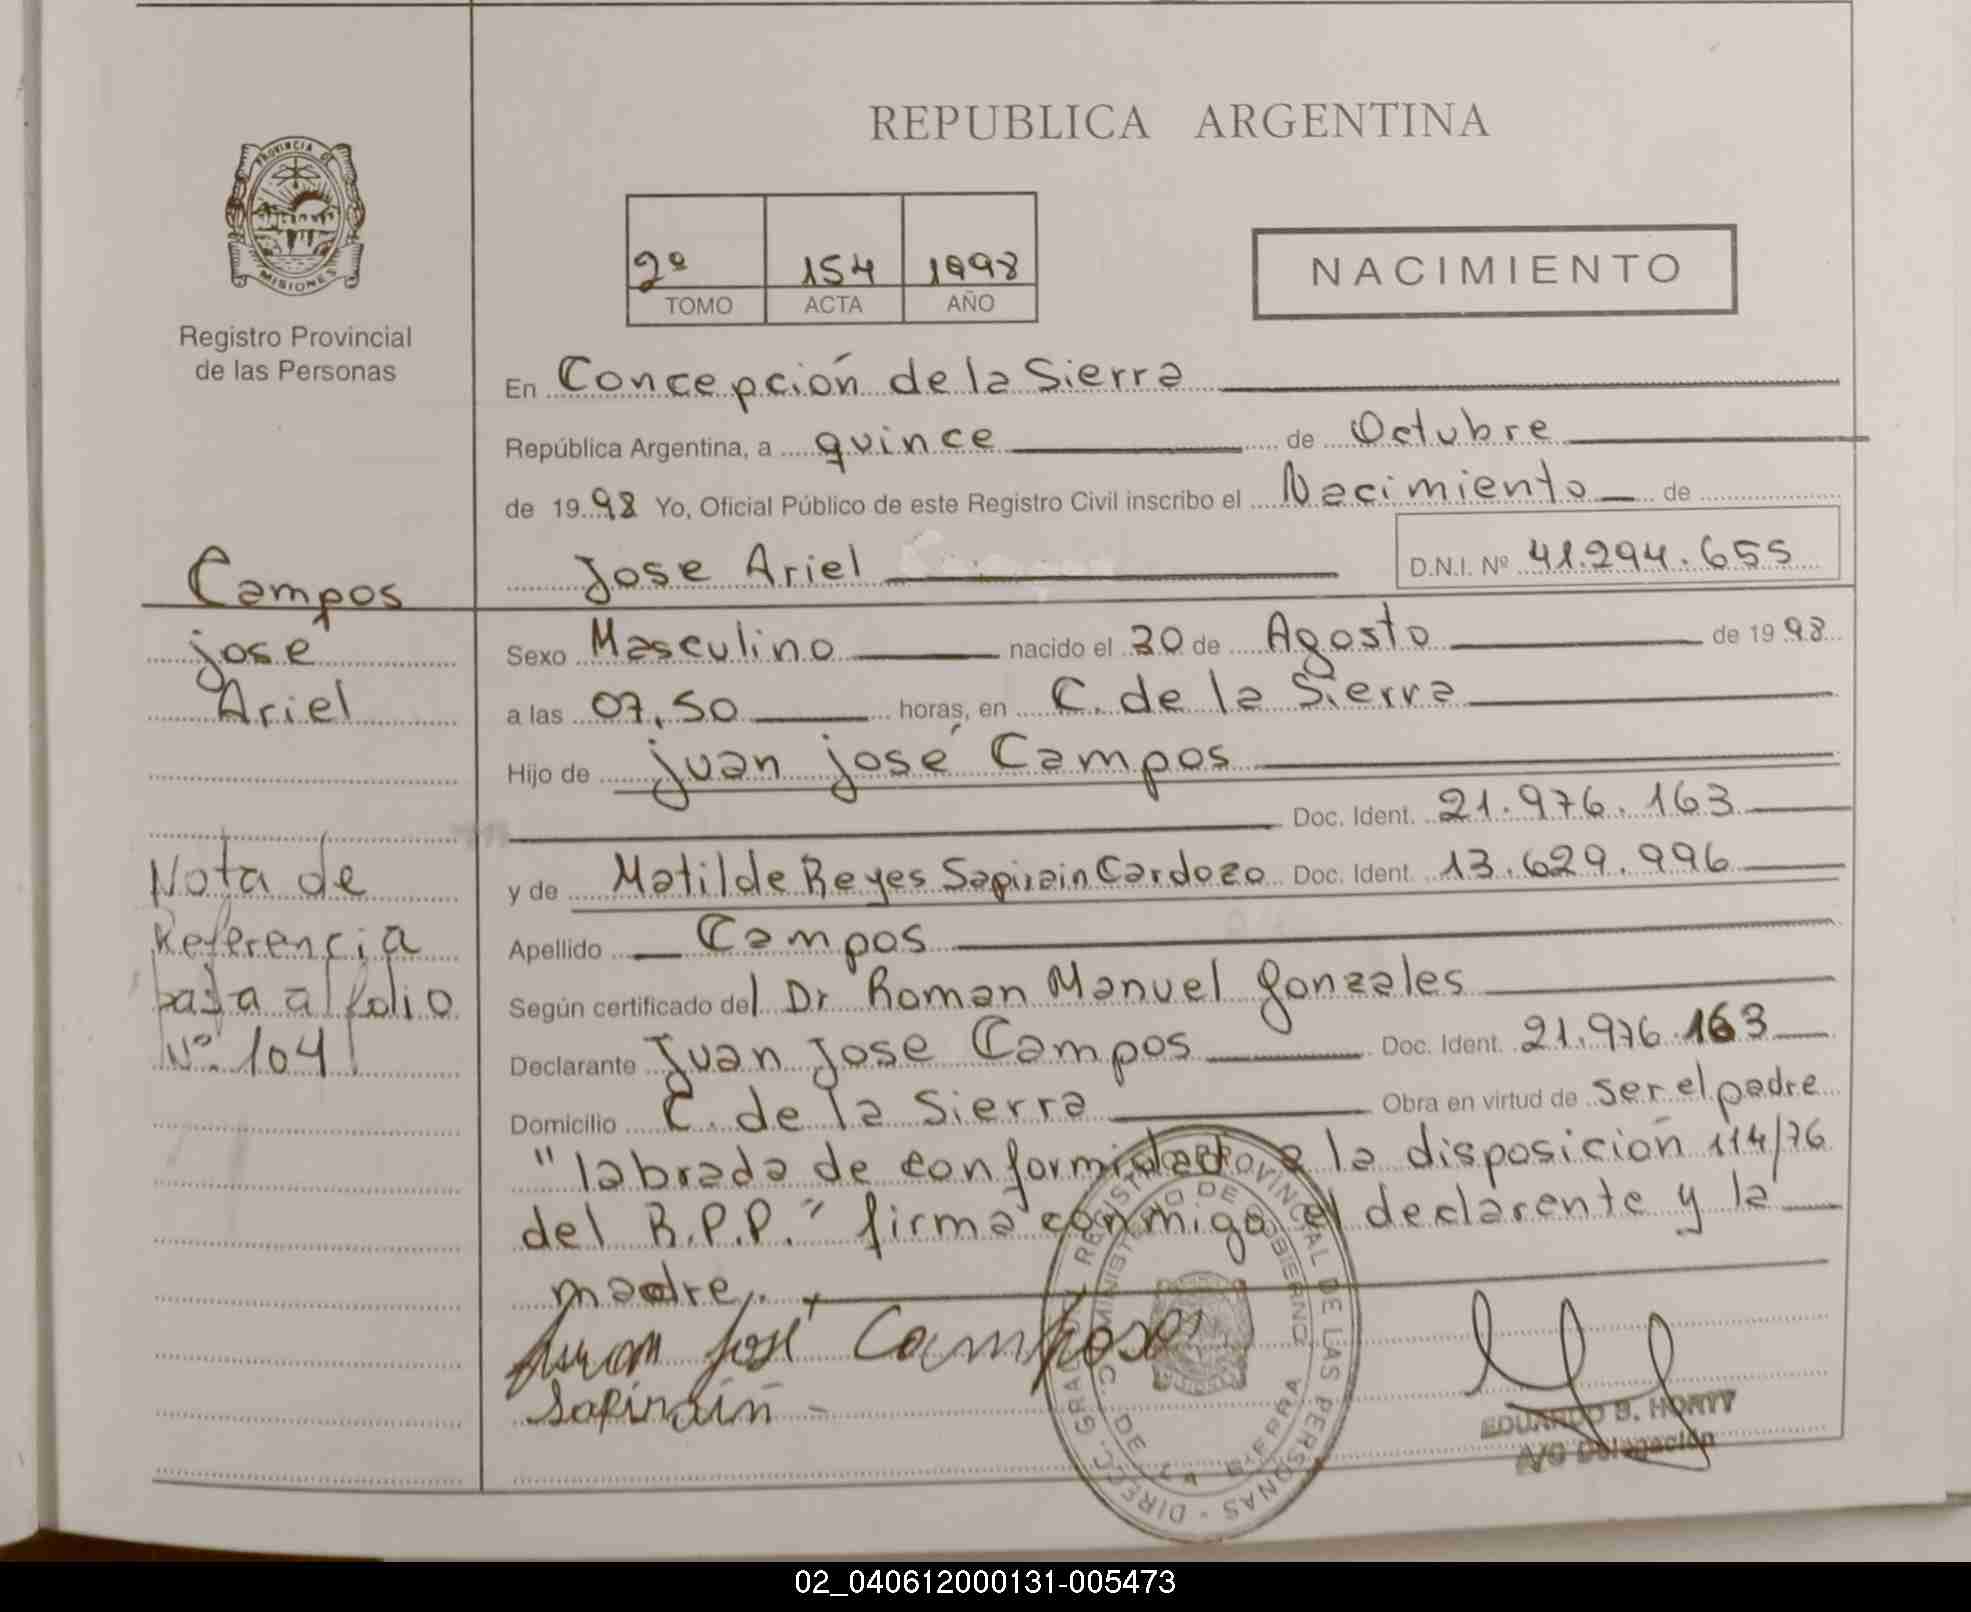 REPUBLICA ARGENTINA
PROVINCIA DE MISIONES
Registro Provincial
de las Personas
2º 154 1998
TOMO ACTA AÑO
NACIMIENTO
En Concepción de la Sierra
República Argentina, a quince de Octubre
de 1998 Yo, Oficial Público de este Registro Civil inscribo el Nacimiento de
Jose Ariel D.N.I. Nº 41.294.655
Campos
jose
Ariel
Sexo Masculino nacido el 30 de Agosto de 1998
a las 07,50 horas, en C. de la Sierra
Hijo de juan josé Campos
Doc. Ident. 21.976.163
y de Matilde Reyes Sapirain Cardozo Doc. Ident. 13.629.996
Apellido Campos
Según certificado del Dr Roman Manuel Gonzales
Declarante Juan Jose Campos Doc. Ident. 21.976.163
Domicilio C. de la Sierra Obra en virtud de ser el padre
"labrada de conformidad a la disposición 114/76
del R.P.P." firma conmigo el declarente y la
madre.
Nota de
Referencia
pasa al folio
Nº 104
Juan José Campos
Sapirain
DIRECC. GRAL. DEL REGISTRO PROVINCIAL DE LAS PERSONAS
MINISTERIO DE GOBIERNO
C. DE LA SIERRA
EDUARDO B.
A/C Delegación
02_040612000131-005473